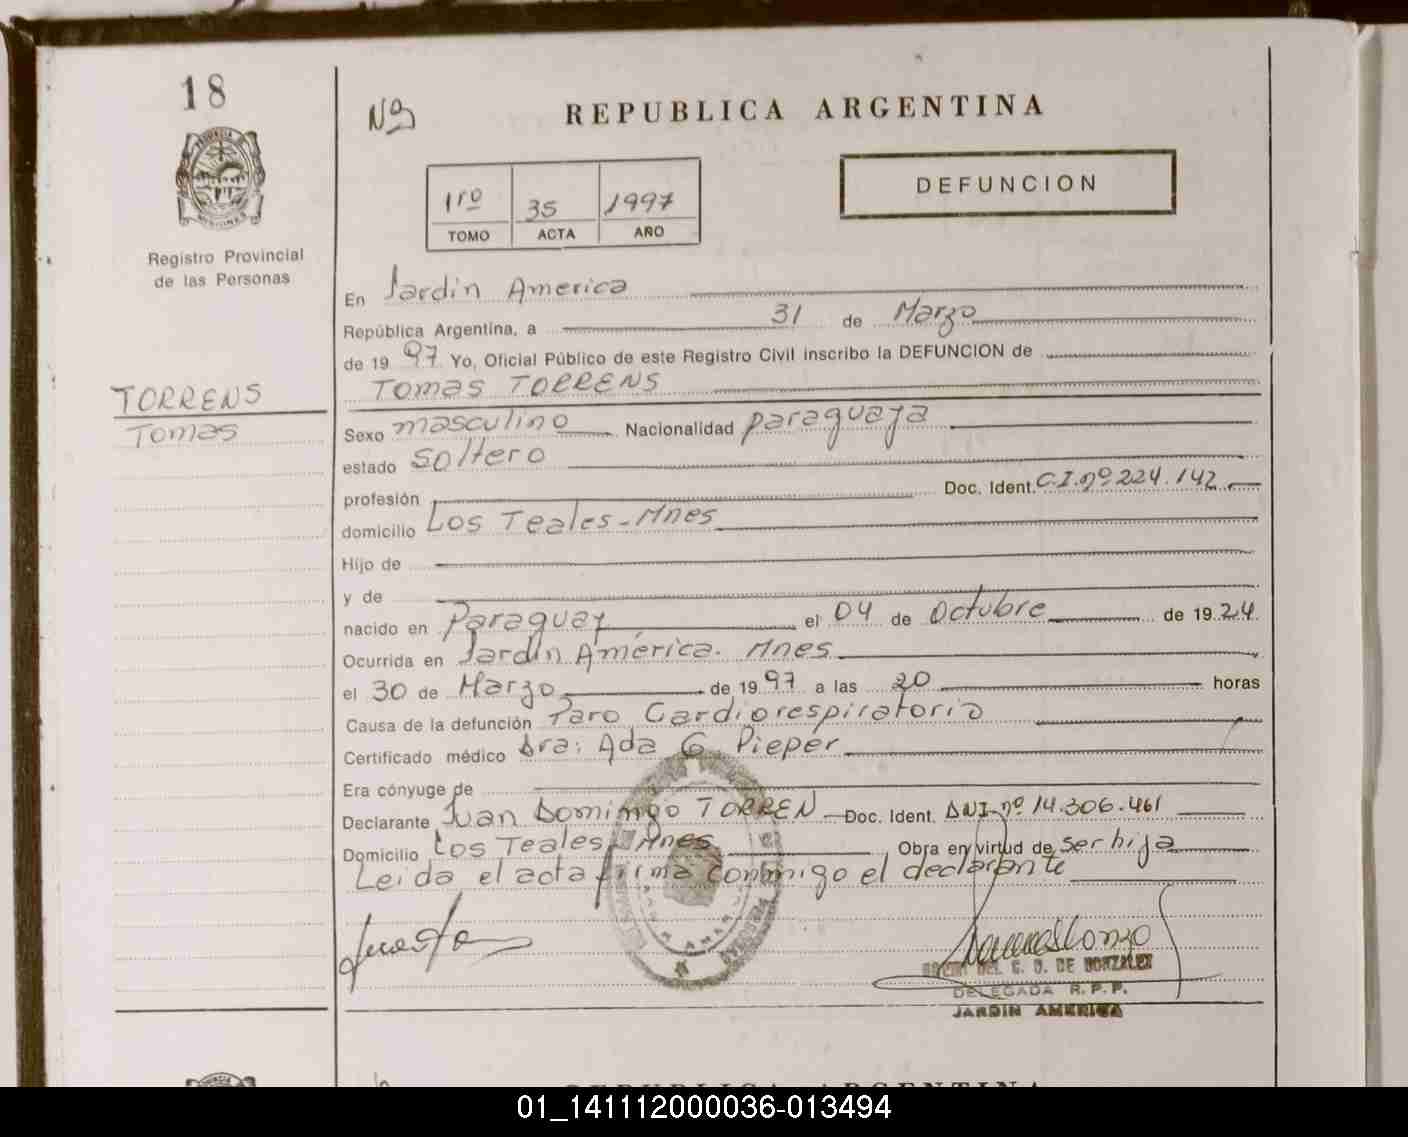 18
Nº
REPUBLICA ARGENTINA
PROVINCIA
MISIONES
1rº 35 1997
TOMO ACTA AÑO
DEFUNCION
Registro Provincial
de las Personas
En Jardin America
República Argentina, a 31 de Marzo
de 19 97 Yo, Oficial Público de este Registro Civil inscribo la DEFUNCION de
TORRENS
Tomas
Tomas TORRENS
Sexo masculino Nacionalidad paraguaya
estado soltero
profesión Doc. Ident. C.I.nº 224.142
domicilio Los Teales-Mnes
Hijo de
y de
nacido en Paraguay el 04 de Octubre de 19 24
Ocurrida en Jardín América. Mnes
el 30 de Marzo de 19 97 a las 20 horas
Causa de la defunción Paro Cardiorespiratorio
Certificado médico Dra: Ada G Pieper
Era cónyuge de
Declarante Juan Domingo TORREN Doc. Ident. DNI-nº 14.306.461
Domicilio Los Teales-Mnes Obra en virtud de ser hija
Leida el acta firma conmigo el declarante
DEL C. D. DE GONZALEZ
DELEGADA R.P.P.
JARDIN AMERICA
REPUBLICA ARGENTINA
01_141112000036-013494